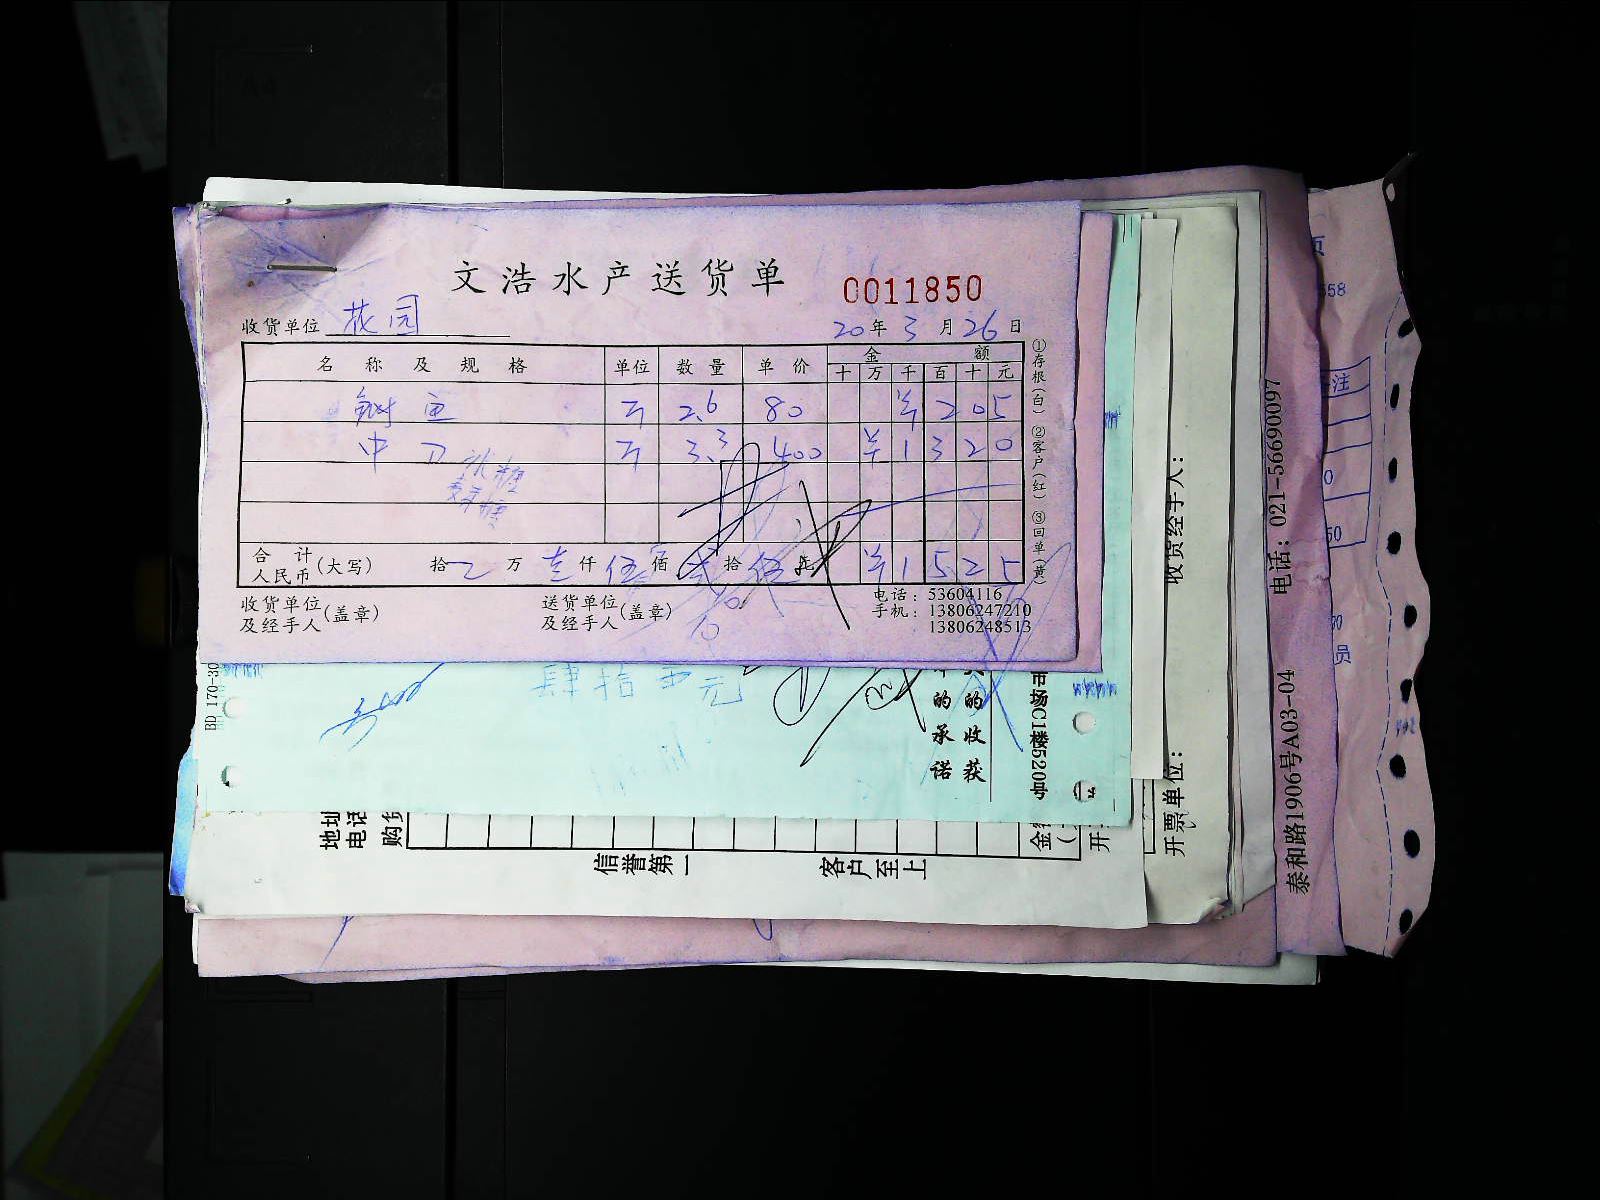 文浩水产送货单 0011850
收货单位 花园 20年3月26日
名称及规格 单位 数量 单价 金额
十 万 千 百 十 元
2.6 80 ¥205
中 3.3 400 ¥1320
合计人民币(大写) 拾 万 壹仟 伍佰 贰拾 伍元 ¥1525
收货单位及经手人(盖章) 送货单位及经手人(盖章)
电话:53604116
手机:13806247210
13806248513
①存根(白) ②客户(红) ③回单(黄)
BD 170-30
肆拾
元
的承诺
的收获
市场C1楼520号
地址
电话
信誉第一 客户至上
收货经手人:
开票单位:
电话:021-56690097
泰和路1906号A03-04
注
员
558